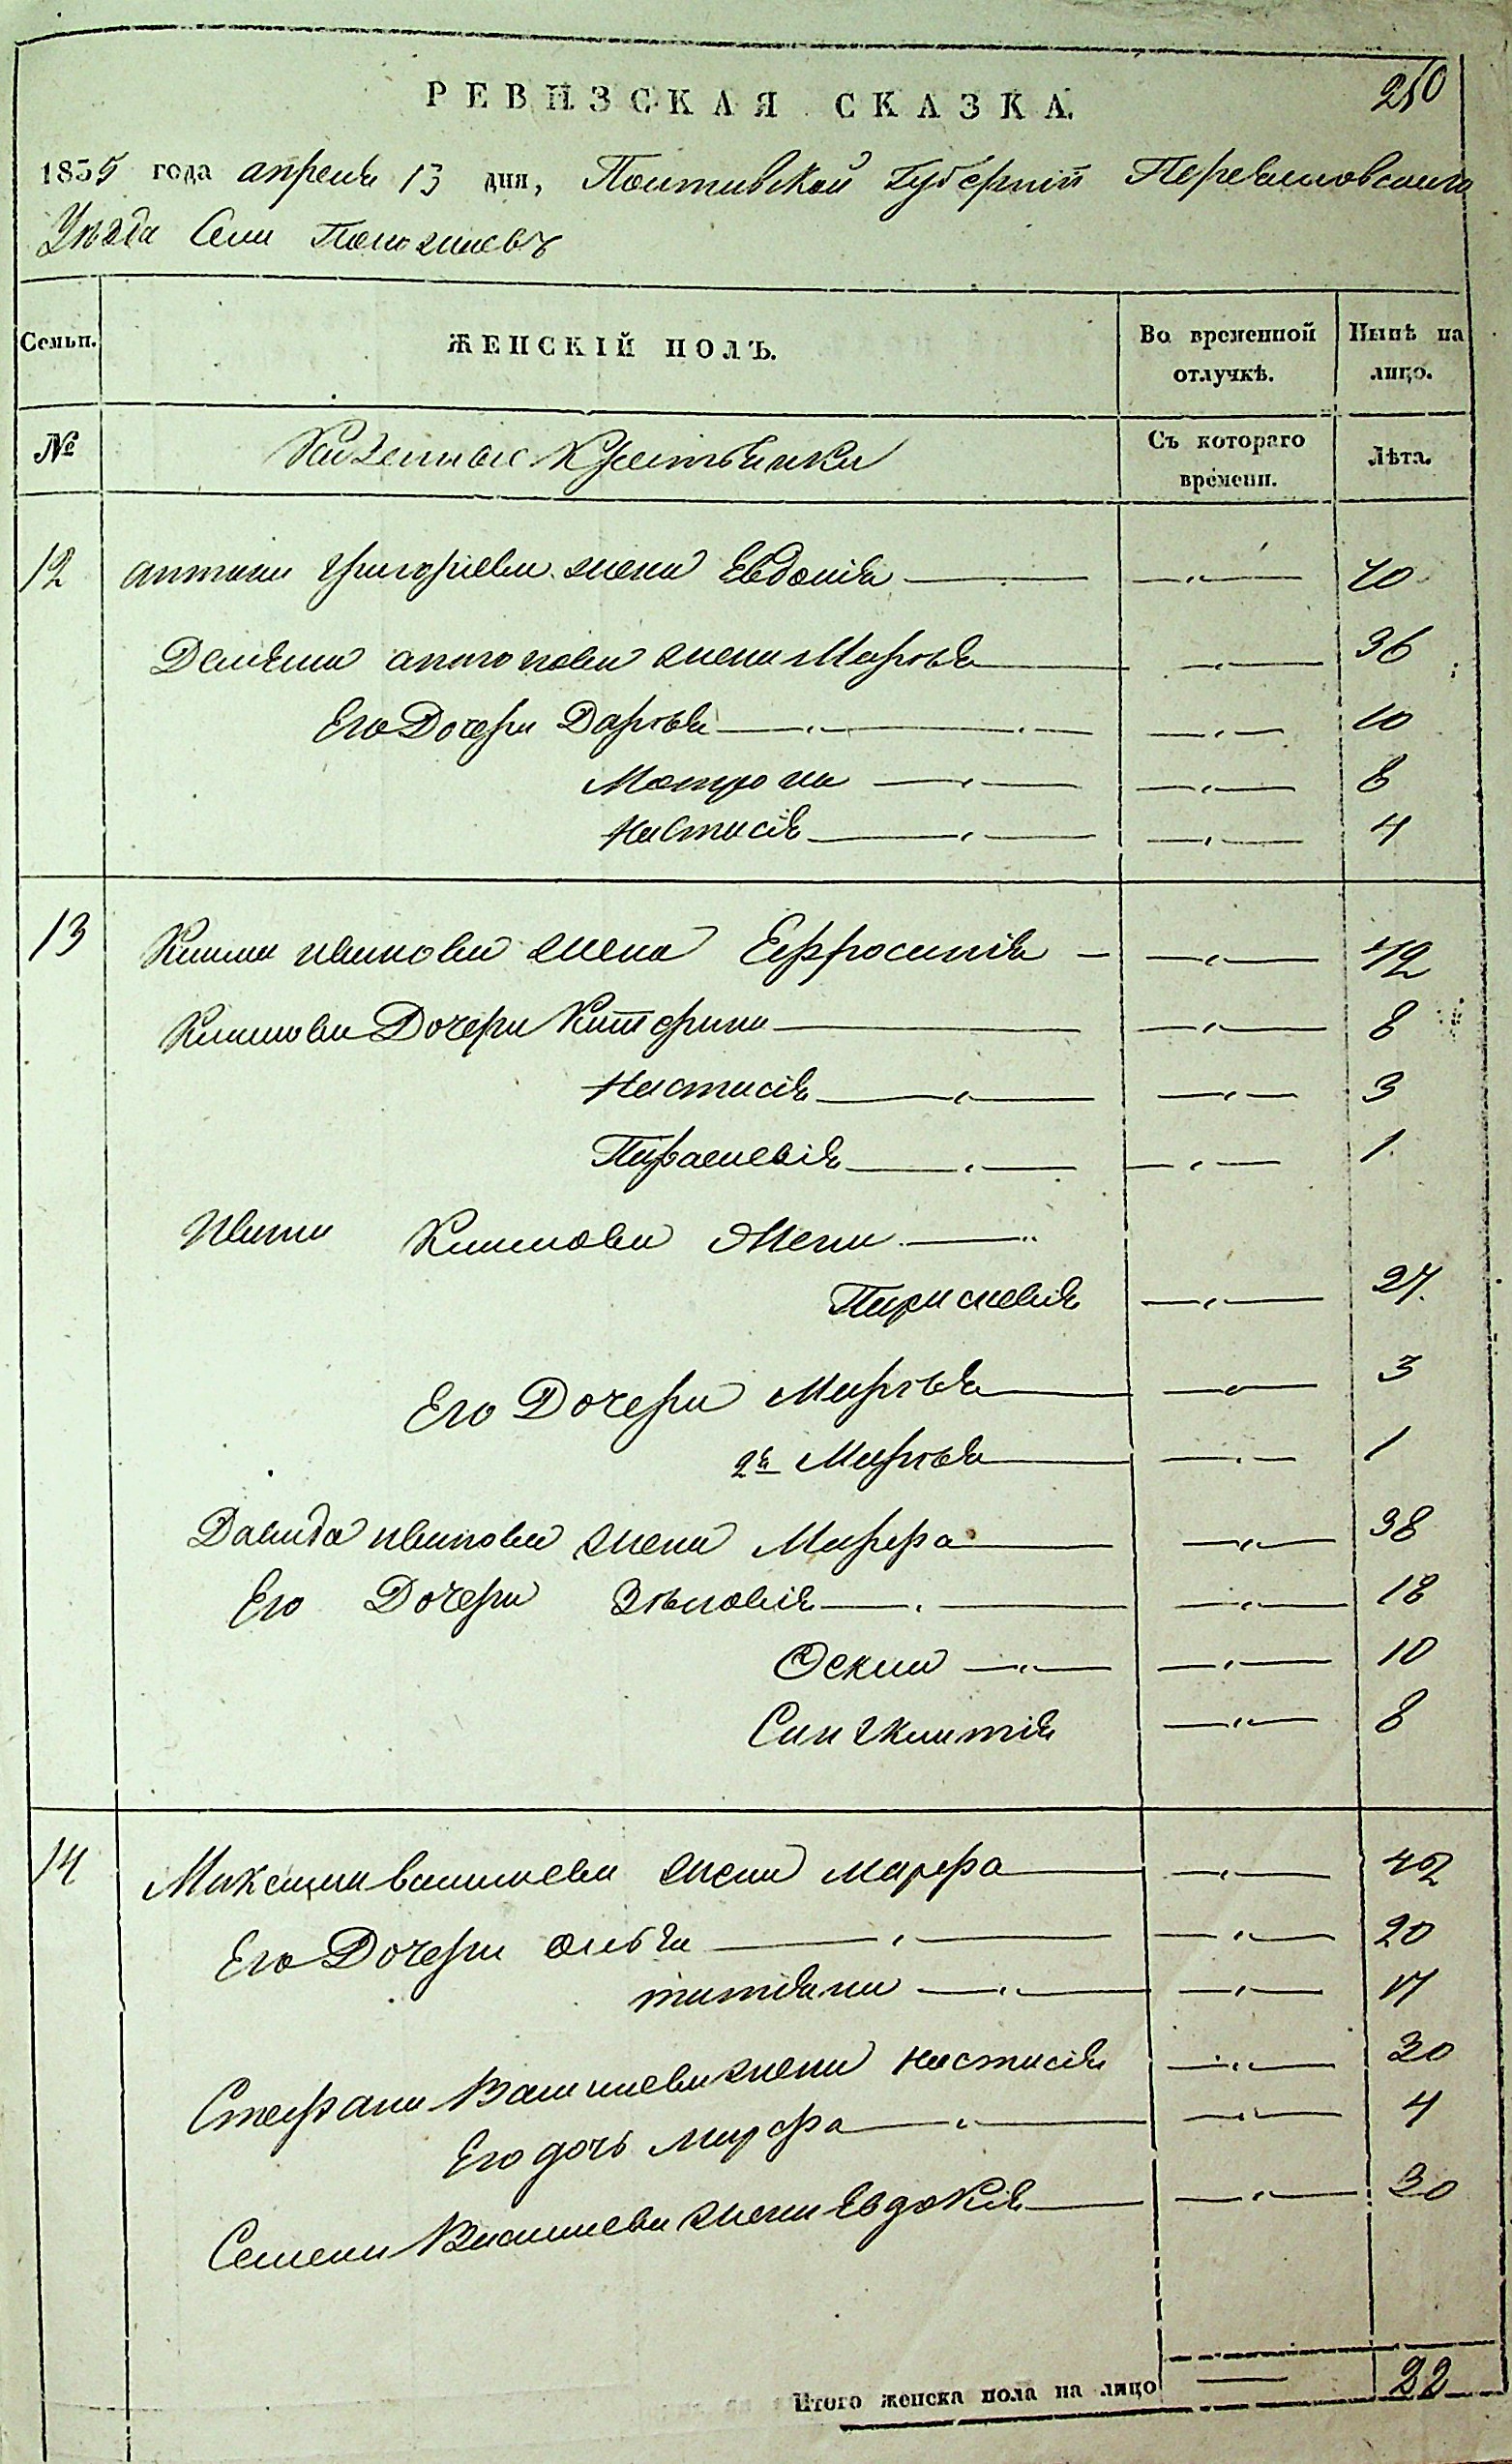 250
РЕВИЗСКАЯ СКАЗКА.
1835 года апреля 13 дня, Полтавской Губерніи Переяславского
Уезда Села
Семьи. ЖЕНСКІЙ ПОЛЪ. Во временной отлучкѣ. Нынѣ на лицо.
№ Казенные Крестьянки Съ котораго времени. Лѣта.
12 антона григоріева жена Евдокія 70
Демяна антонова жена Марья 36
Его Дочери Дарья 10
Матрона 8
Настасія 4
13 Клима иванова жена Ефросинія 42
Климова Дочери Катерина 8
Настасія 3
Параскевія 1
Ивана Климова Жена
Параскевія 27
Его Дочери Марья 3
2я Марья 1
Давида иванова жена Марфа 38
Его Дочери Зѣновія 18
10
Сингклитія 8
14 Максима василиева жена марфа 42
Его Дочери олбга
татіяна
Стефана Василиева жена настасія 30
Его дочь марфа 4
Семена Василиева жена Евдокія 30
Итого женска пола на лицо 22